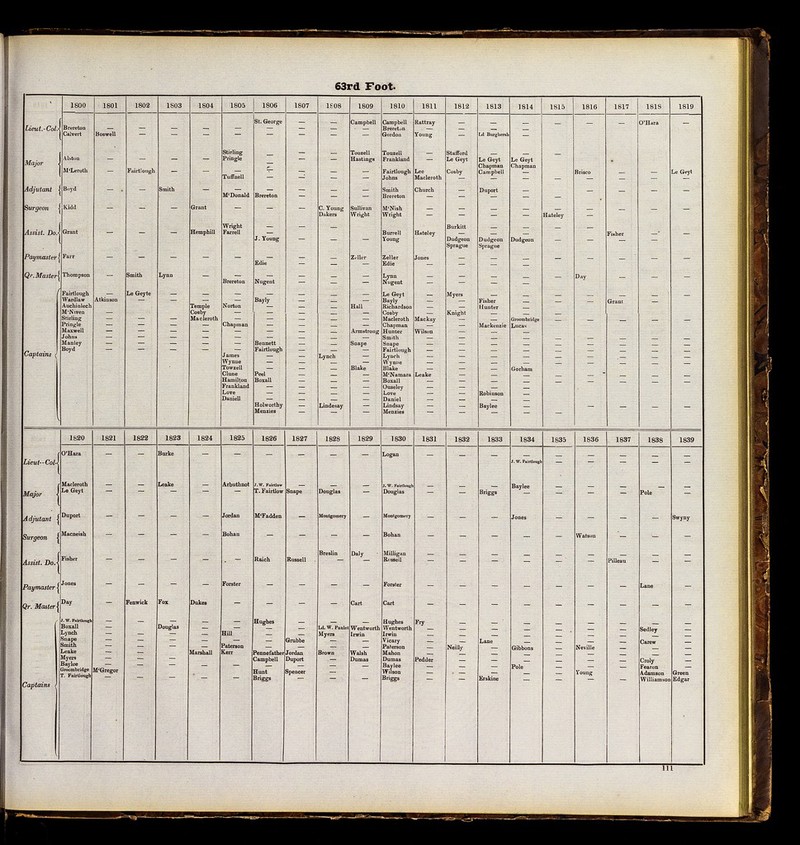 63rd Foot.
1800 1801 1802 1803 1804 1805 1806 1807 1808 1809 1810 1811 1812 1813 1814 1815 1816 1817 1818 1819
St. George — — Campbell Campbell Rattray — — — — — — O'Hara —
Lieut.-Col. Brereton — — — — — — — — — Brereton —
Calvert Boswell — — — — — — — — Gordon Young — Ld Burghersh —
Stirling — — Tonzell Tonzell — Stafford — —
Major Alston — — — — Pringle — — — Hastings Frankland — Le Geyt Le Geyt Le Geyt — — — — —
Chapman Chapman
M'Leroth — Fairtlough — — — — — — — Fairtlough Lee Cosby Campbell — — Brisco — — Le Geyt
Tuffnell — — — — Johns Macleroth — — —
Adjutant Boyd — — Smith — — — — — — Smith Church — Duport — — — — — —
M'Donald Brereton — — — Brereton
Surgeon Kidd — — — Grant — — — C. Young Sullivan M'Nish — — — — — — — — —
Dakers Wright Wright — — — — Hateley
Wright — Burkitt
Assist. Do. Grant — — — Hemphill Farrell — — — — Burrell Hateley — — — — — Fisher — —
J. Young — — — Young Dudgeon Dudgeon Dudgeon — —
Sprague Sprague
Paymaster Farr — — — — — — — — Zeller Zeller Jones — — — — — — — —
Edie — — — Edie
Qr. Master Thompson — Smith Lynn — — — — — — Lynn — — — — — Day — — —
Brereton Nugent — — — Nugent
Fairtlough — Le Geyte — — — — — — — Le Geyt — Myers — — — — — — —
Wardlaw Atkinson — — — — Bayly — — — Bayly — — Fisher — — — Grant — —
Auchinlech — — — Temple Norton — — — Hall Richardson — — Hunter —
M'Niven — — — Cosby — — — — — Cosby — Knight — —
Stirling — — — Macleroth — — — — — Macleroth Mackay — — Groombridge
Pringle — — — — Chapman — — — — Chapman — — Mackenzie Lucas
Maxwell — — — — — — — — Armstrong Hunter Wilson — — —
Johns — — — — — — — — — Smith
Manley — — — — — Bennett — — Snape Snape
Captains Boyd — — — — — Fairtlough — — — Fairtlough
James — — Lynch — Lynch
Wynne — — — — Wynne
Towzell — — — Blake Blake — — — Gorham
Clune Peel — — — M'Namara Leake
Hamilton Boxall — — — Boxall
Frankland — — — — Ouseley
Love — — — — Love — — Robinson —
Daniell — — — — Daniel
Holworthy — Lindesay — Lindsay — — Baylee —
Menzies — — — Menzies
1820 1821 1822 1823 1824 1825 1826 1827 1828 1829 1830 1831 1832 1833 1834 1835 1836 1837 1838 1839
Lieut-Col. O'Hara — — Burke — — — — — — Logan — — — J. W. Fairtlough — — — — —
Major Macleroth — — Leake — Arbuthnot J. W. Fairtlow — — — J. W. Fairtlough — — — Baylee — — — — —
Le Geyt — — — — — T. Fairtlow Snape Douglas — Douglas — — Briggs — — — — Pole —
Adjutant Duport — — — — Jordan M'Fadden — Montgomery — Montgomery — — — Jones — — — — Swyny
Surgeon Macneish — — — — Bohan — — — — Bohan — — — — — Watson — — —
Breslin Daly Milligan
Assist. Do. Fisher — — — — — Raich Russell — — Russell — — — — — — Pilleau — —
Paymaster Jones — — — — Forster — — — — Forster — — — — — — — Lane —
Qr. Master Day — Fenwick Fox Dukes — — — — Cart Cart — — — — — — — — —
J. W. Fairtlough — — — — — Hughes — — — Hughes Fry — — — — — — — —
Boxall — — Douglas — — — — Ld. W. Poulet Wentworth Wentworth — — — — — — — Sedley —
Lynch — — — — Hill — — Myers Irwin Irwin
Snape — — — — — — Grubbe — — Vicary — — Lane — — — — Carew —
Smith — — — — Paterson — — — — Paterson — Neilly — Gibbons — Neville — — —
Leake — — — Marshall Kerr Pennefather Jordan Brown Walsh Mahon
Myers — — — — — Campbell Duport — Dumas Dumas Pedder — — — — — — Croly —
Baylee — — — — — — — — — Baylee — — — Pole — — — Fearon —
Groombridge M'Gregor — — — — Hunt Spencer — — Wilson — — — — — Young — Adamson Green
Captains T. Fairtlough — — — — — Briggs — — — Briggs — — Erskine — — — — Williamson Edgar
111